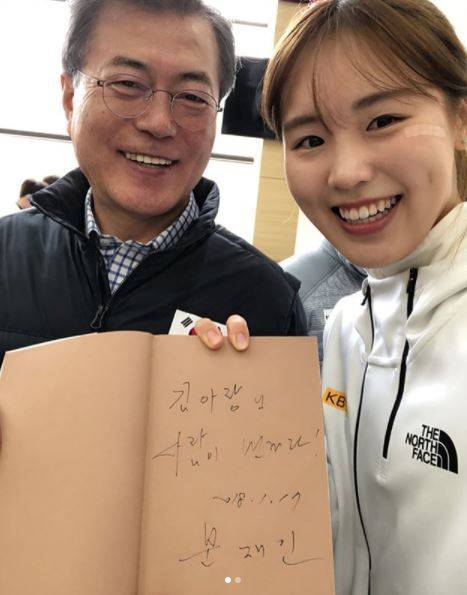 김아랑님
사람이 먼저다!
2018.1.17
문재인
KB
THE
NORTH
FACE